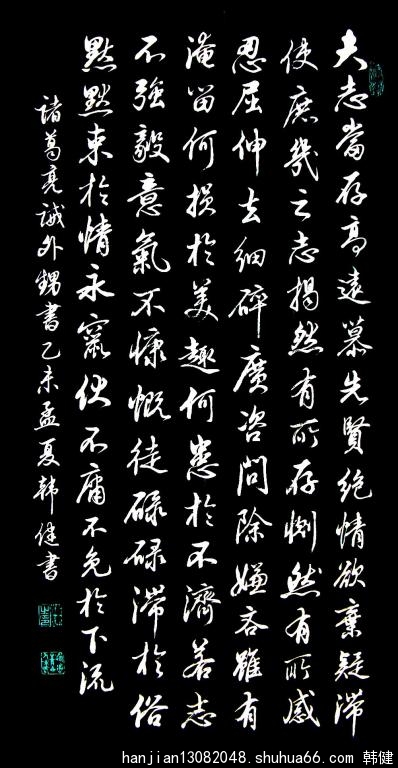 夫志當存高遠慕先賢絕情欲棄疑滯
使庶幾之志揭然有所存惻然有所感
忍屈伸去細碎廣咨問除嫌吝雖有
淹留何損於美趣何患於不濟若志
不強毅意氣不慷慨徒碌碌滯於俗
默默束於情永竄伏不庸不免於下流
諸葛亮誡外甥書乙未孟夏韓健書
hanjian13082048.shuhua66.com 韩健